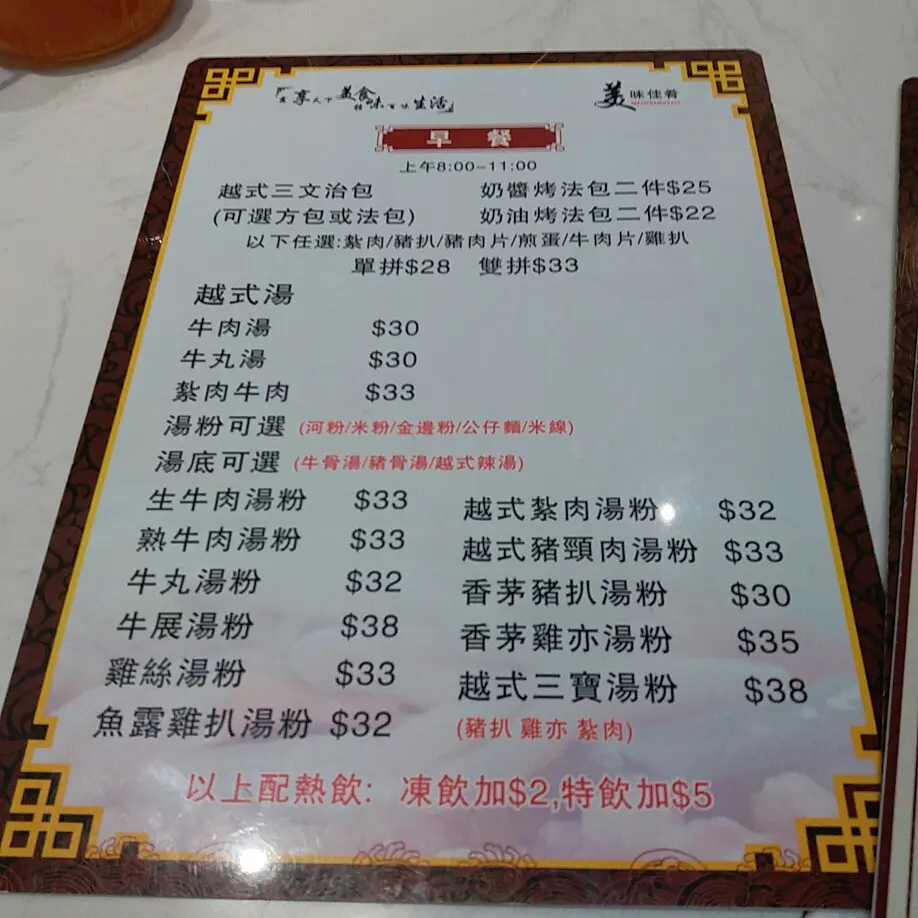 享天下美食 味百味生活
美味佳肴
早餐
上午8:00-11:00
越式三文治包 奶醬烤法包二件$25
(可選方包或法包) 奶油烤法包二件$22
以下任選:紮肉/豬扒/豬肉片/煎蛋/牛肉片/雞扒
單拼$28 雙拼$33
越式湯
牛肉湯 $30
牛丸湯 $30
紮肉牛肉 $33
湯粉可選 (河粉/米粉/金邊粉/公仔麵/米線)
湯底可選 (牛骨湯/豬骨湯/越式辣湯)
生牛肉湯粉 $33
熟牛肉湯粉 $33
牛丸湯粉 $32
牛展湯粉 $38
雞絲湯粉 $33
魚露雞扒湯粉 $32
越式紮肉湯粉 $32
越式豬頸肉湯粉 $33
香茅豬扒湯粉 $30
香茅雞亦湯粉 $35
越式三寶湯粉 $38
(豬扒 雞亦 紮肉)
以上配熱飲: 凍飲加$2,特飲加$5